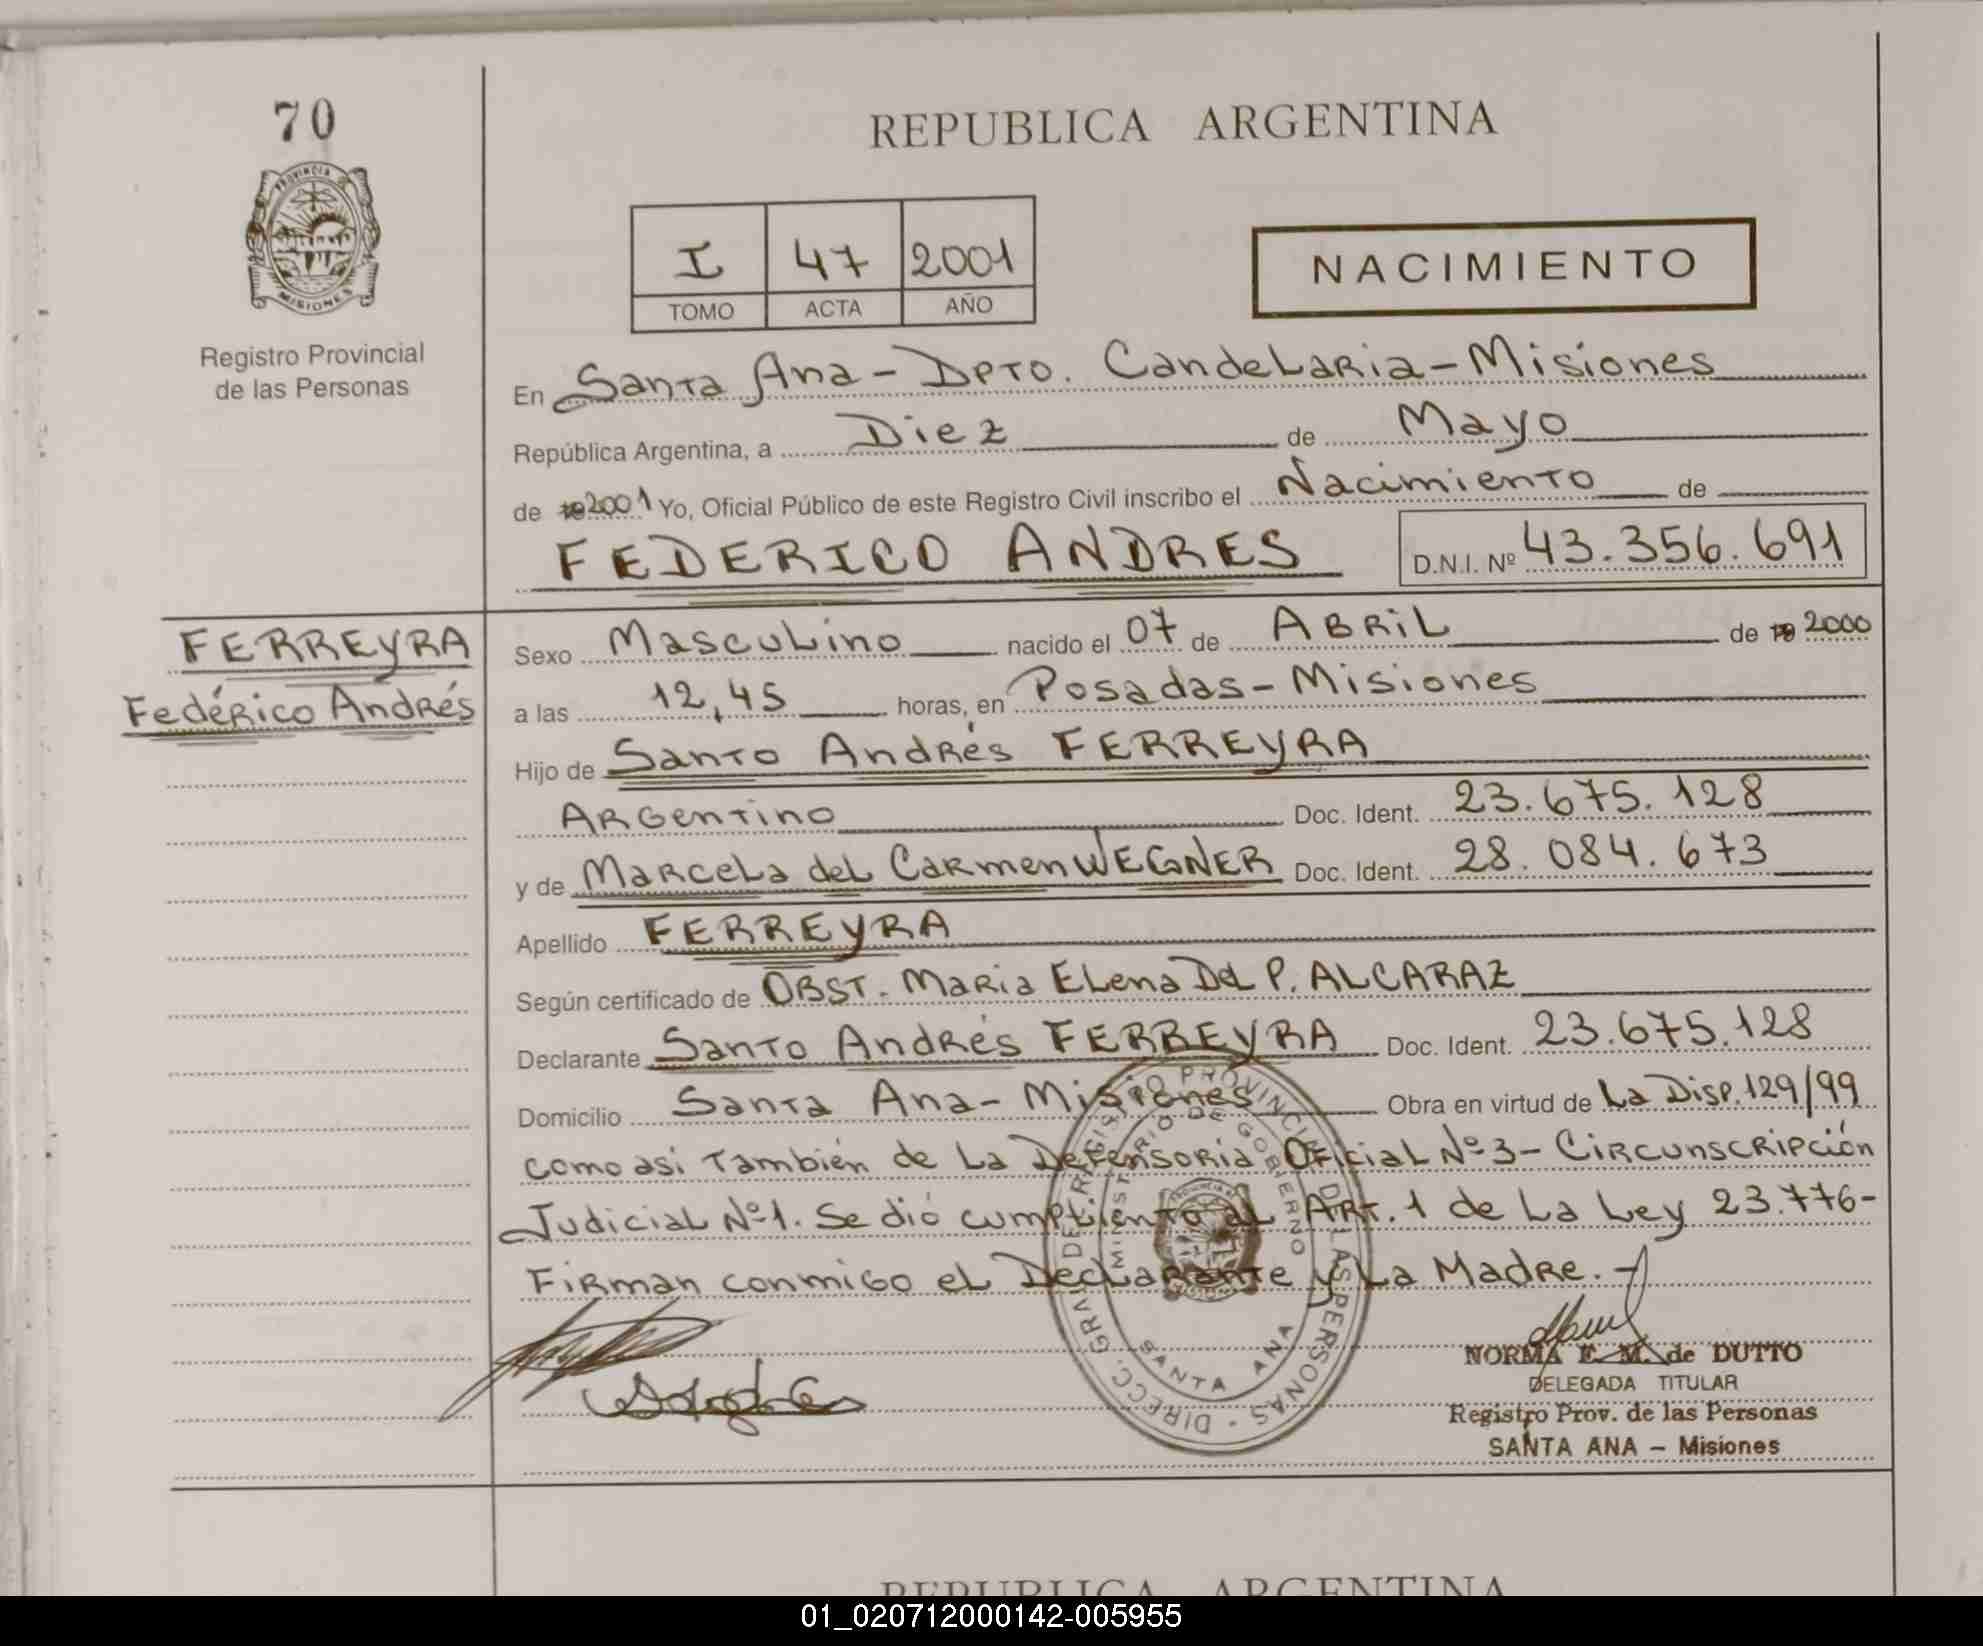 70
PROVINCIA
MISIONES
Registro Provincial
de las Personas
REPUBLICA ARGENTINA
I 47 2001
TOMO ACTA AÑO
NACIMIENTO
En Santa Ana - Dpto. Candelaria - Misiones
República Argentina, a Diez de Mayo
de 19 2001 Yo, Oficial Público de este Registro Civil inscribo el Nacimiento de
FEDERICO ANDRES D.N.I. Nº 43.356.691
FERREYRA
Federico Andrés
Sexo Masculino nacido el 07 de ABRIL de 19 2000
a las 12,45 horas, en Posadas - Misiones
Hijo de Santo Andrés FERREYRA
Argentino Doc. Ident. 23.675.128
y de Marcela del Carmen WEGNER Doc. Ident. 28.084.673
Apellido FERREYRA
Según certificado de OBST. Maria Elena Del P. ALCARAZ
Declarante Santo Andrés FERREYRA Doc. Ident. 23.675.128
Domicilio Santa Ana - Misiones Obra en virtud de La Disp. 129/99
como asi también de La Defensoria Oficial Nº 3 - Circunscripción
Judicial Nº 1. Se dió cumplimiento al Art. 1 de La Ley 23.776 -
Firman conmigo el Declarante y La Madre. -
DIRECC. GRAL. DE REGISTRO PROVINCIAL DE LAS PERSONAS
MINISTERIO DE GOBIERNO
SANTA ANA
NORMA E. M. de DUTTO
DELEGADA TITULAR
Registro Prov. de las Personas
SANTA ANA - Misiones
REPUBLICA ARGENTINA
01_020712000142-005955